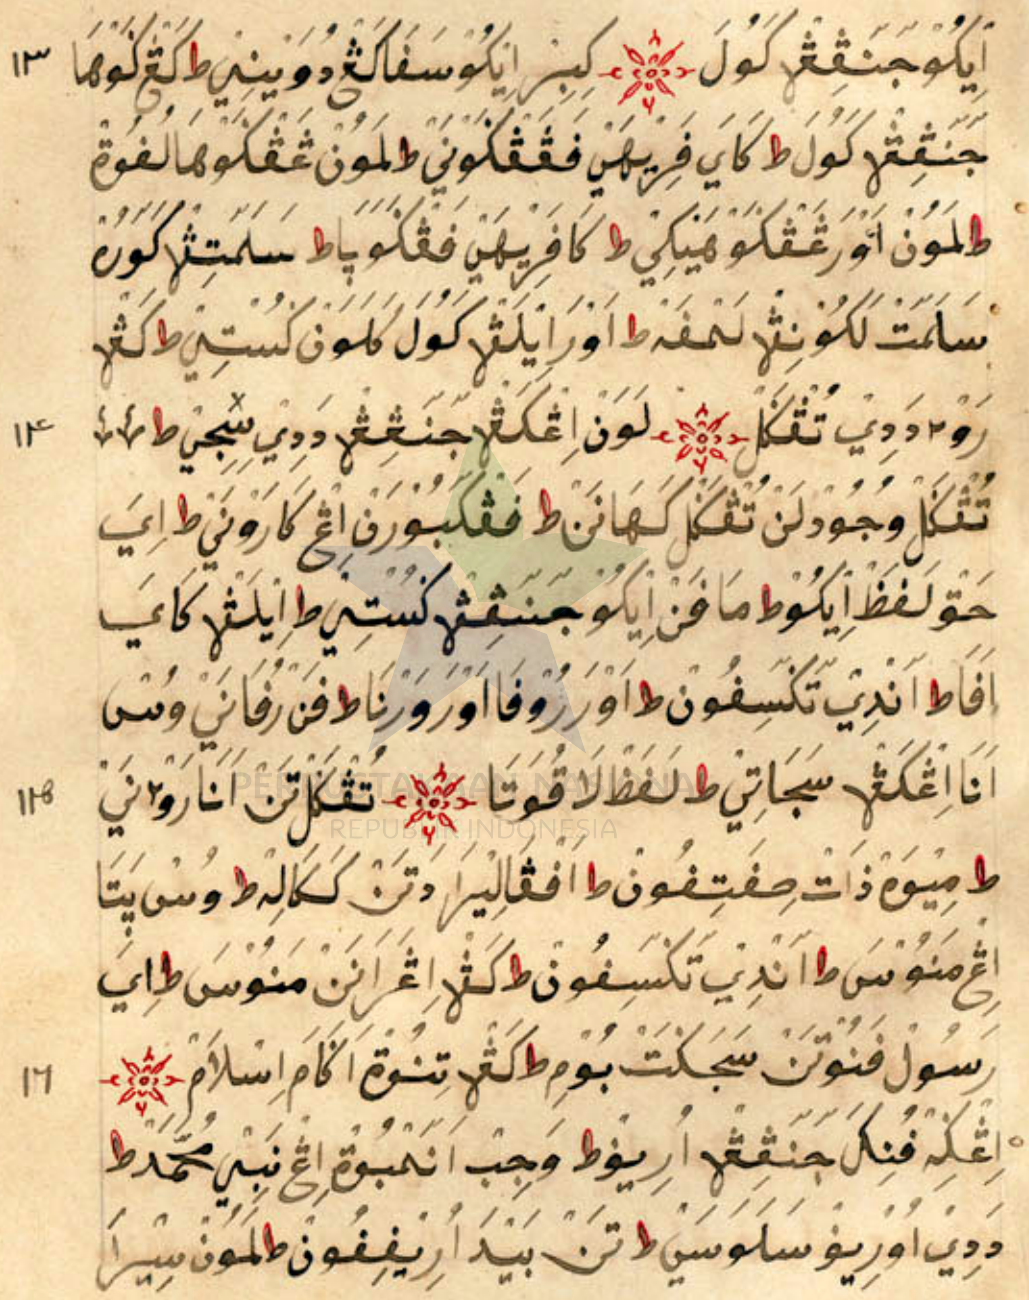 اِيكُوْ جَنَڤِڠْڠ كَوُلَ كِبِرْ اِيكُوْ سَفَا كَڠْ دُوَيْنِيْ ط كَڠْ كَوْهَا ١٣
جَنَڤِڠْڠ كَوُلَ ط كَايَ فِرِيْهَيْ فَڠَڠْكَوْنَيْ ط لَمَوُنْ عَڠْكَوْهَا لُفُوة
ط لَمَوُنْ اَوْرَ عَڠْكَوْ هَنِكِيْ ط كَافِرِيْهَيْ فَڠْكَوْيَا ط سَلَمَتِڠْ كَوُرَة
سَلَمَتْ لَكُوْنِڠْ لَنْمَفَهْ ط اَوْرَ اِيْلَڠْ كَوُلَ كَلَوَنْ كُسْتِيْ ط كَڠْ
رَوْ٢ دَدِيْ تُڠْكَلْ لَوَنْ اِڠْكَڠْ جَنَڠِڠْ دَدِيْ سَجِيْ ط ١٤
تُڠْكَلْ وُجُوْد لَنْ تُڠْكَلْ كَهَانَنْ ط فَڠْكَبُوْرَنْ اِڠْ كَارَوْنَيْ ط اِيَ
حَقْ لَفَظْ اِيكُوْ ط مَافَنْ اِيكُوْ جَنَڤِڠْڠ كُسْتِيْ ط اِيْلَڠْ كَايَ
اَفَا ط اَنْدِيْ تَكْسِفُوْنْ ط اَوْرَ رُوْفَا اَوْرَ وَرْنَا ط فَنْ رُفَانَيْ وُسْ
اَنَا اِڠْكَڠْ سَجَاتِيْ ط لَفَظْ لَا قُوْتَا تُڠْكَلْ تَنْ اَنَا رَوْ٢نَيْ ١٥
ط مِيْوَهْ ذَاتْ صِفَتِفُوْنْ ط اَفْڠَالِيْرَا دَتَنْ كَكَالِهْ ط وُسْ پَتَا
اِڠْ مَنُوْسَ ط اَنْدِيْ تَكْسِفُوْنْ ط كَڠْ اِڠْرَانَنْ مَنُوْسَ ط اِيَ
رَسُوْل فَنُوْتَنْ سَجَكَتْ بُوْمِ ط كَڠْ تِنُوْة اَكَامَ اِسْلَامْ ١٦
اِڠْكِهْ فُنِكَ جَنَڤِڠْڠ اُرِيْفْ ط وَجِبْ اَنْمَبُوْة اِڠْ نَبِيْ مُحَمَّدْ ط
دَدِيْ اُوْرِيفْ سَلَوَسَيْ ط تَنْ بَيْدَا اُرِيْفِفُوْنْ ط لَمَوُنْ سِيْرَا
PERPUSTAKAAN NASIONAL
REPUBLIK INDONESIA